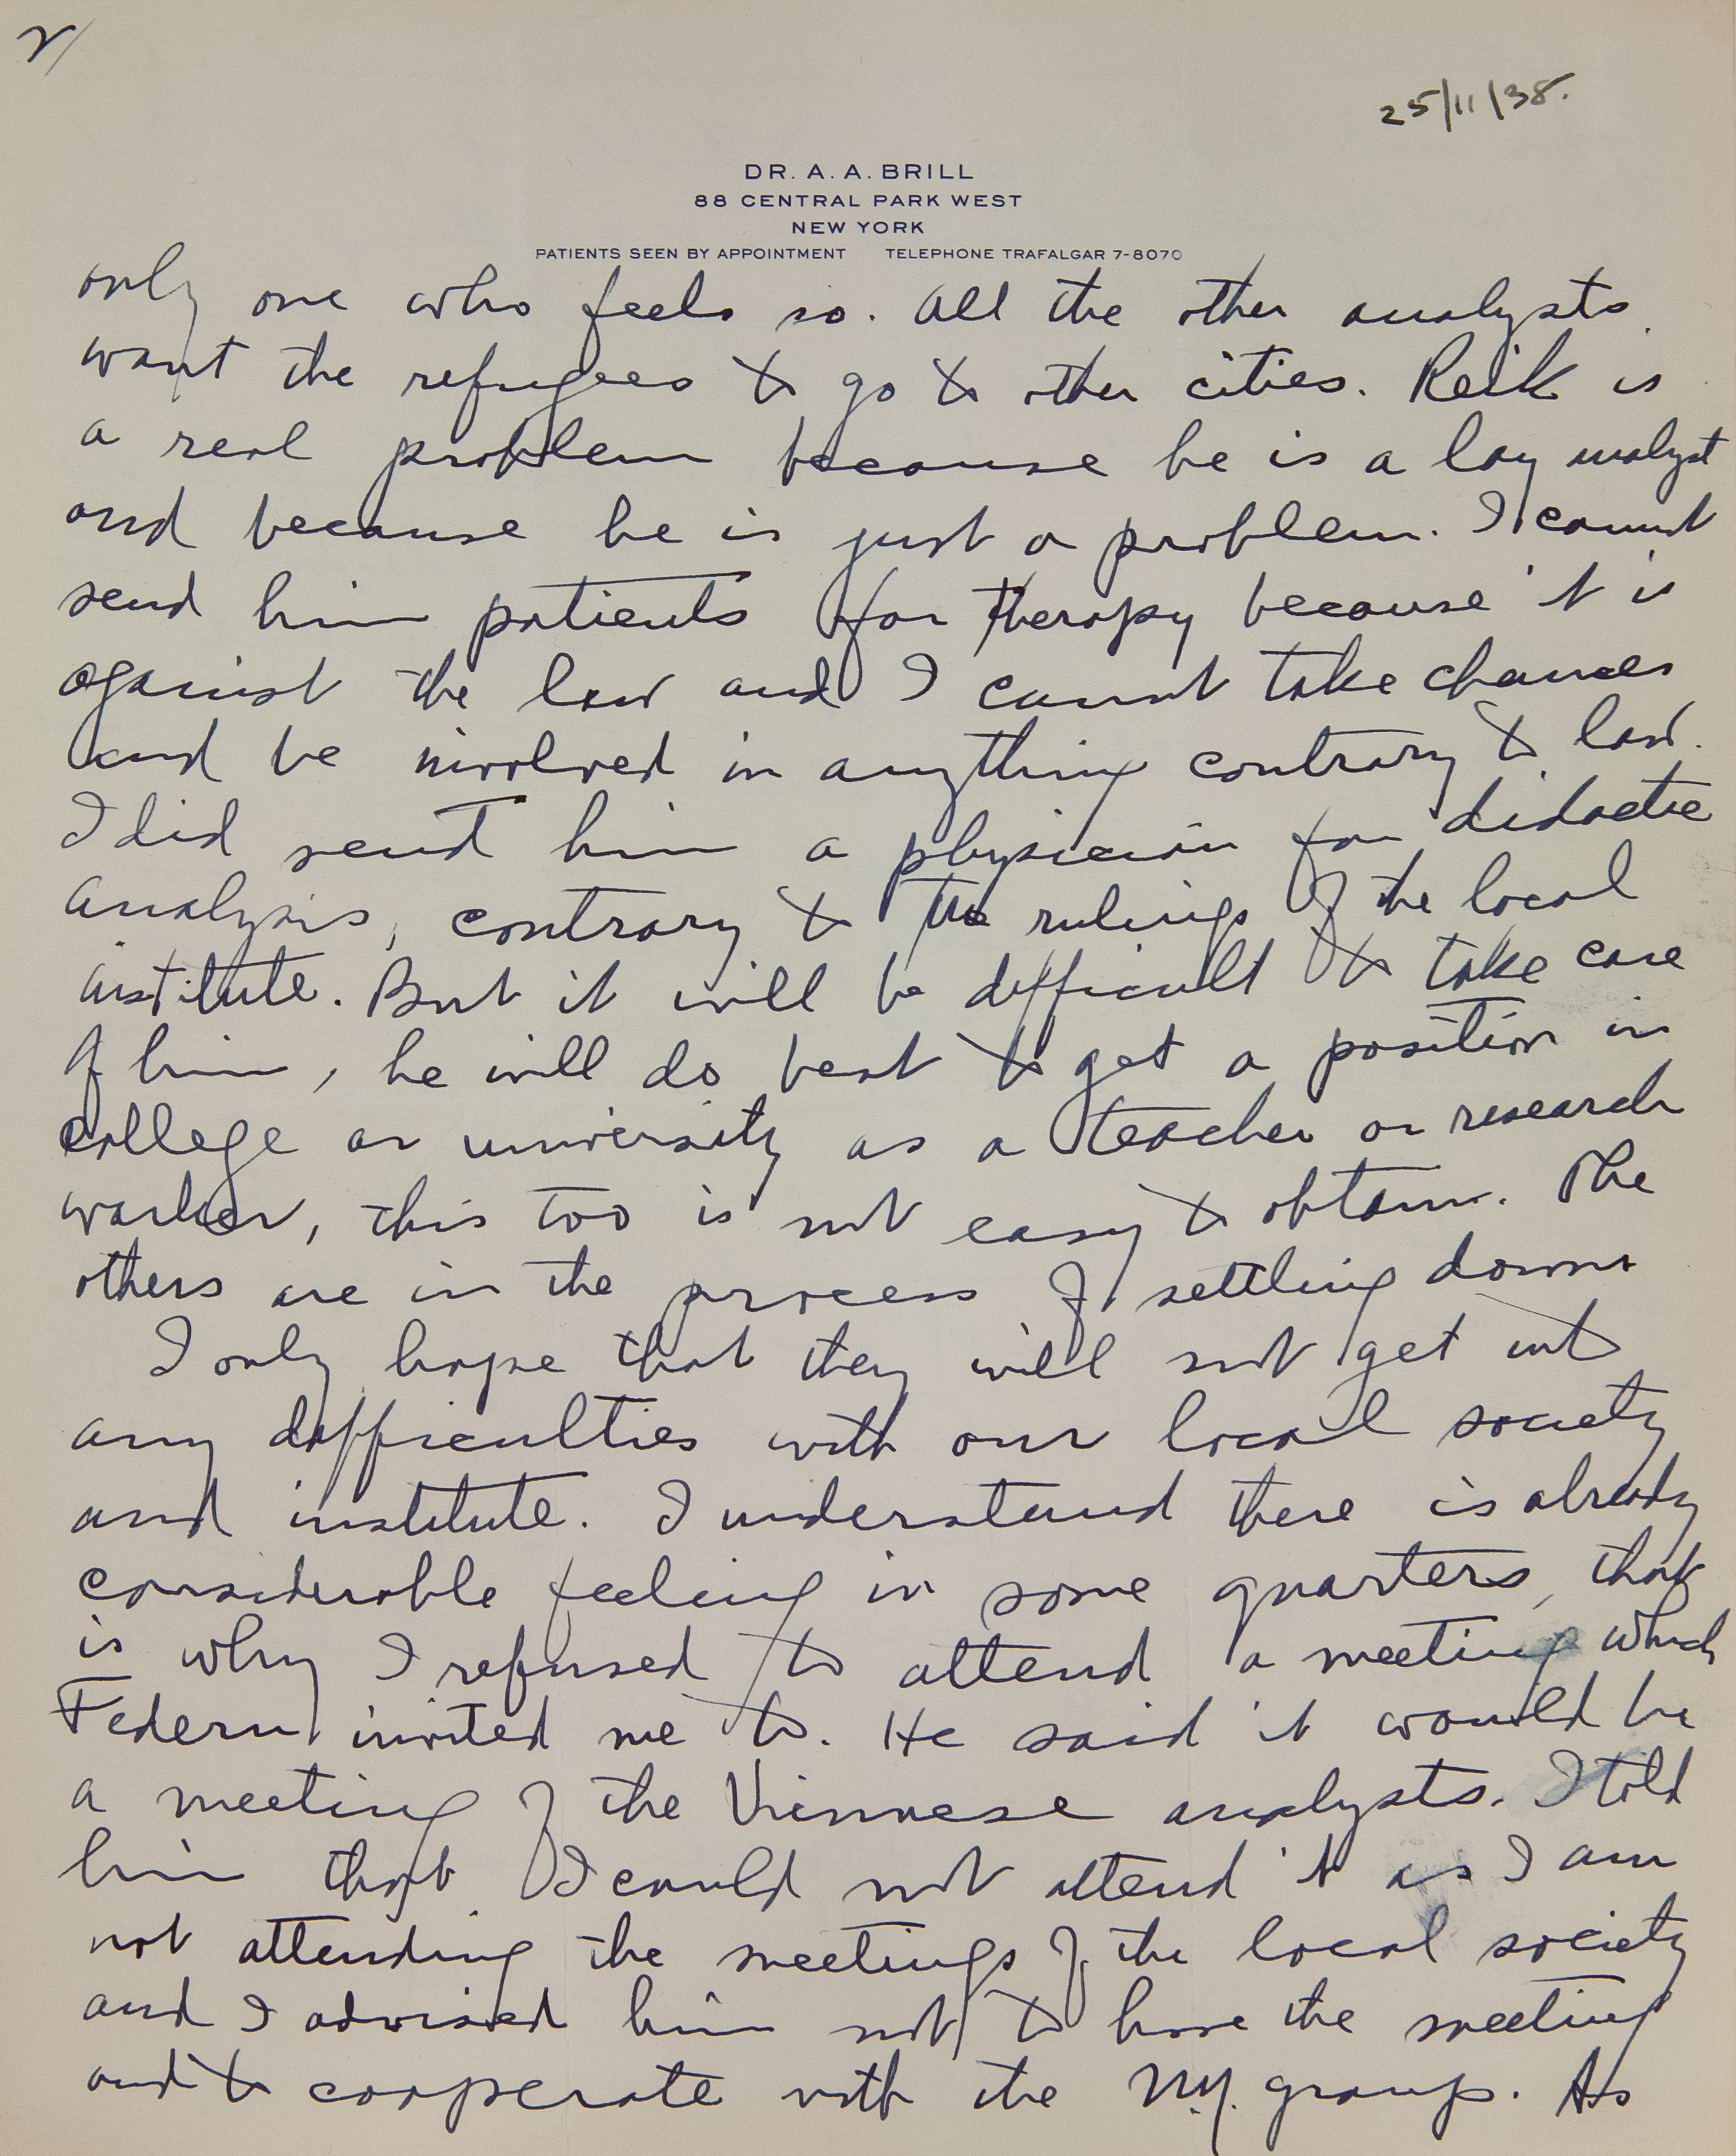 2/
25/11/38.
DR. A. A. BRILL
88 CENTRAL PARK WEST
NEW YORK
PATIENTS SEEN BY APPOINTMENT TELEPHONE TRAFALGAR 7-8070
only one who feels so. All the other analysts
want the refugees to go to other cities. Reik is
a real problem because he is a lay analyst
and because he is just a problem. I cannot
send him patients for therapy because it is
against the law and I cannot take chances
and be involved in anything contrary to law.
I did send him a physician for didactic
analysis, contrary to the rulings of the local
institute. But it will be difficult to take care
of him, he will do best to get a position in
college or university as a teacher or research
worker, this too is not easy to obtain. The
others are in the process of settling down
I only hope that they will not get into
any difficulties with our local society
and institute. I understand there is already
considerable feeling in some quarters, that
is why I refused to attend a meeting which
Federn invited me to. He said it would be
a meeting of the Viennese analysts. I told
him that I could not attend it as I am
not attending the meetings of the local society
and I advised him not to have the meeting
and to cooperate with the N.Y. group. As